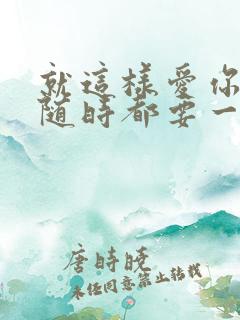 就這樣愛你
隨時都要一
唐時晚
未任同意禁止转载